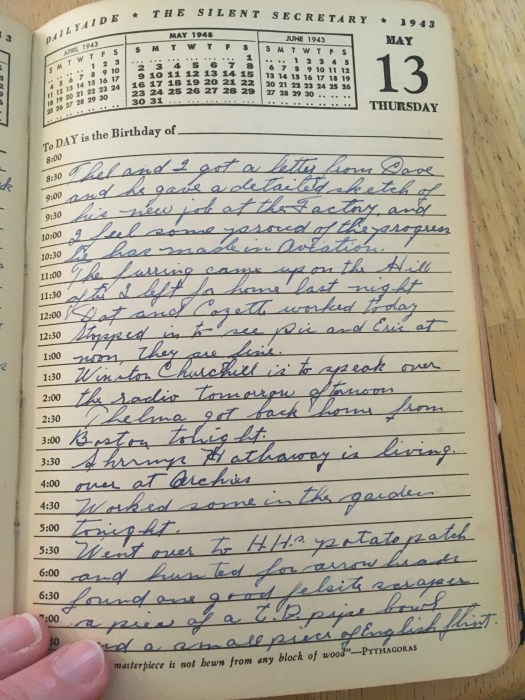 DAILYAIDE ★ THE SILENT SECRETARY ★ 1943
APRIL 1943
S M T W T F S
1 2 3
4 5 6 7 8 9 10
11 12 13 14 15 16 17
18 19 20 21 22 23 24
25 26 27 28 29 30
MAY 1943
S M T W T F S
1
2 3 4 5 6 7 8
9 10 11 12 13 14 15
16 17 18 19 20 21 22
23 24 25 26 27 28 29
30 31
JUNE 1943
S M T W T F S
1 2 3 4 5
6 7 8 9 10 11 12
13 14 15 16 17 18 19
20 21 22 23 24 25 26
27 28 29 30
MAY
13
THURSDAY
To DAY is the Birthday of
8:00
8:30 Thel and I got a letter from Dave
9:00 and he gave a detailed sketch of
9:30 his new job at the Factory, and
10:00 I feel some proud of the progress
10:30 he has made in Aviation.
11:00 The furring came up on the Hill
11:30 after I left for home last night
12:00 Dat and Cozette worked today
12:30 Stopped in to see Pic and Eric at
1:00 noon, They are fine.
1:30 Winston Churchill is to speak over
2:00 the radio tomorrow afternoon
2:30 Thelma got back home from
3:00 Boston tonight.
3:30 Shrimp Hathaway is living
4:00 over at Archies
4:30 Worked some in the garden
5:00 tonight.
5:30 Went over to H.H.s potato patch
6:00 and hunted for arrow heads
6:30 found one good felsite scraper
7:00 a piece of a T.D pipe bowl
and a small piece of English flint.
masterpiece is not hewn from any block of wood"—PYTHAGORAS